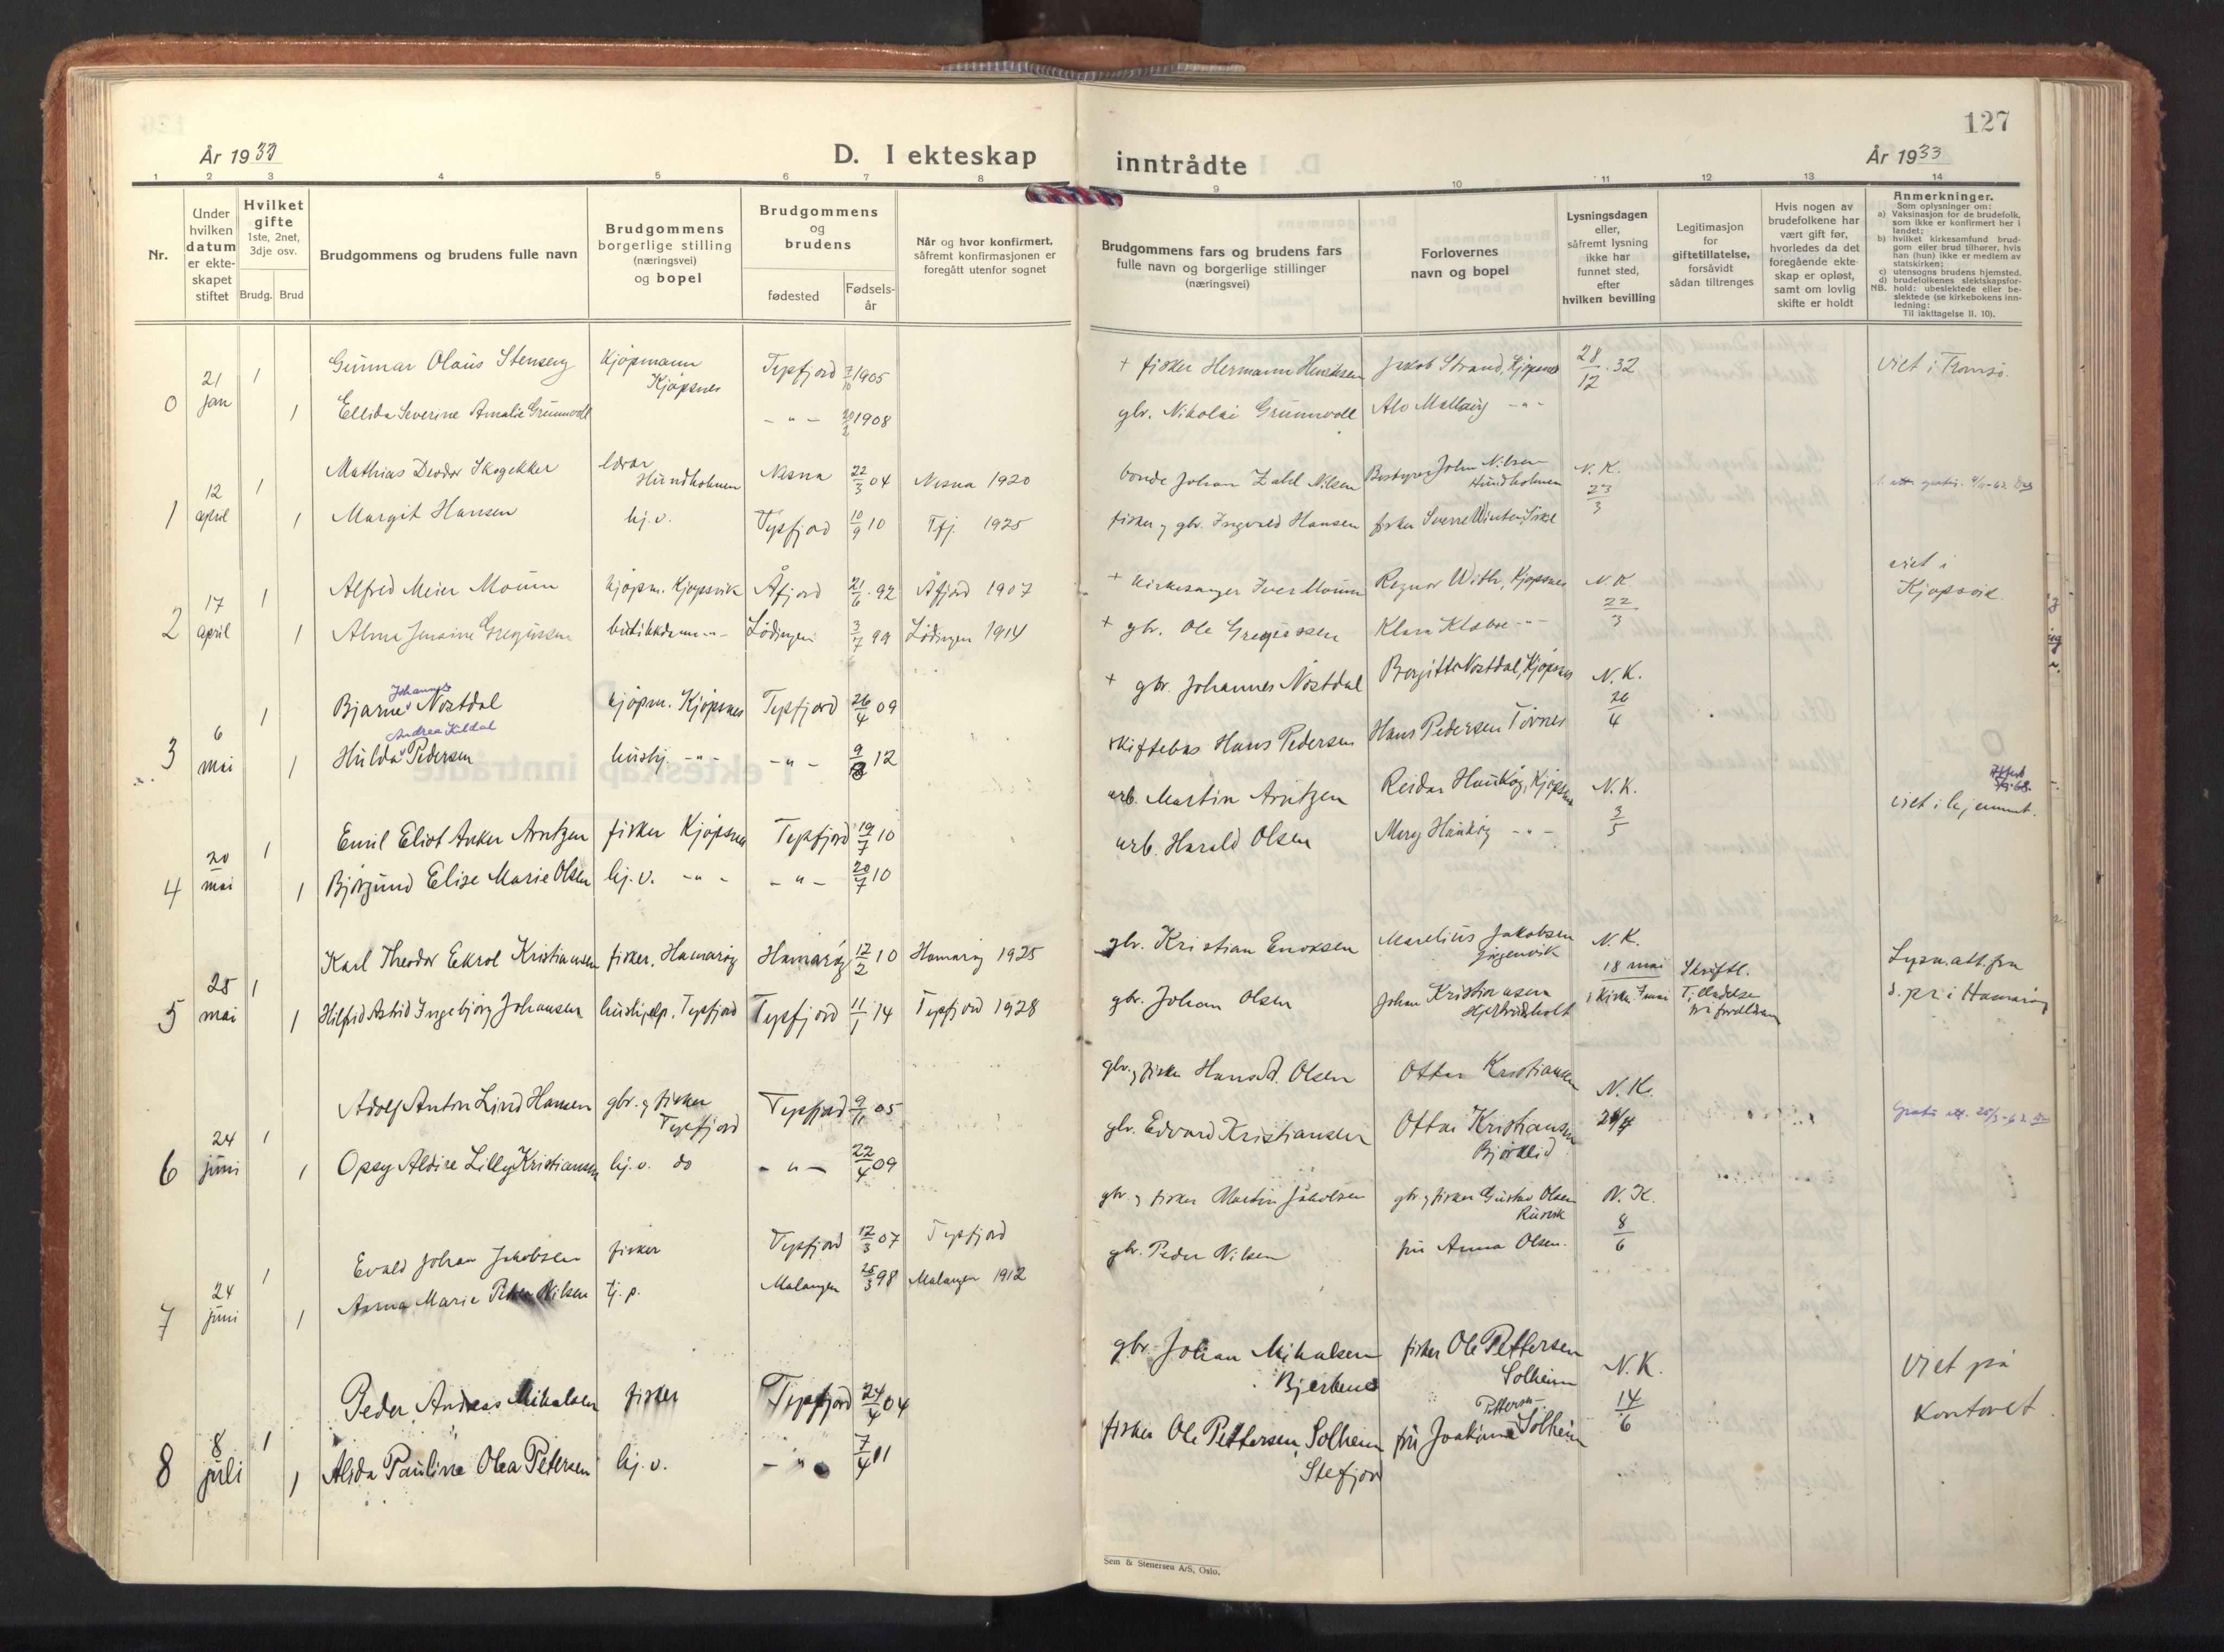 År 1933
D. I ekteskap
1 2 3 4 5 6 7 8
Nr.
Under hvilken datum er ekte-skapet stiftet
Hvilket gifte
1ste, 2net, 3dje osv.
Brudg. Brud
Brudgommens og brudens fulle navn
Brudgommens borgerlige stilling (næringsvei) og bopel
Brudgommens og brudens
fødested
Fødsels-år
Når og hvor konfirmert, såfremt konfirmasjonen er foregått utenfor sognet
0 21 jan 1 Gunnar Olaus Stenseng Kjøpmann Kjøpsnes Tysfjord 7/10 1905
1 Ellida Severine Amalie Grunnvoll - " - 20/2 1908
1 12 april 1 Mathias Deodor Skogekker lærer Hundholmen Nesna 22/3 04 Nesna 1920
1 Margit Hansen hj.v. Tysfjord 10/9 10 Tfj. 1925
2 17 april 1 Alfred Meier Moum kjøpm. Kjøpsvik Åfjord 21/6 92 Åfjord 1907
1 Alma Gregussen butikkdame - " - Lødingen 3/7 99 Lødingen 1914
3 6 mai 1 Bjarne Johannes Nostdal kjøpm. Kjøpsnes Tysfjord 26/4 09
1 Hulda Andrea Kildal Pedersen hushj. - " - - " - 9/8 12
4 20 mai 1 Emil Eliot Anker Arntzen fisker Kjøpsnes Tysfjord 19/7 10
1 Bjørgund Elise Marie Olsen hj.v. - " - - " - 20/7 10
5 28 mai 1 Karl Theodor Eekrol Kristiansen fisker, Hamarøy Hamarøy 12/2 10 Hamarøy 1925
1 Hilfrid Astrid Ingebjørg Johansen hushjelp. Tysfjord Tysfjord 11/1 14 Tysfjord 1928
6 24 juni 1 Adolf Anton Lind Hansen gbr. og fisker Tysfjord Tysfjord 9/11 05
1 Opsy Aldire Lilly Kristiansen hj.v. do - " - 22/4 09
7 24 juni 1 Evald Johan Jakobsen fisker Tysfjord 12/3 07 Tysfjord
1 Anna Marie Nilsen tj.p. Malangen 25/3 98 Malangen 1912
8 8 juli 1 Peder Andreas Mikalsen fisker Tysfjord 24/4 04
1 Alida Pauline Olea Petersen hj.v. - " - 7/4 11
127
inntrådte
År 1933
9 10 11 12 13 14
Brudgommens fars og brudens fars fulle navn og borgerlige stillinger (næringsvei)
Forlovernes navn og bopel
Lysningsdagen eller, såfremt lysning ikke har funnet sted, efter hvilken bevilling
Legitimasjon for giftetillatelse, forsåvidt sådan tiltrenges
Hvis nogen av brudefolkene har vært gift før, hvorledes da det foregående ekte-skap er opløst, samt om lovlig skifte er holdt
Anmerkninger.
Som oplysninger om:
a) Vaksinasjon for de brudefolk, som ikke er konfirmert her i landet;
b) hvilket kirkesamfund brud-gom eller brud tilhører, hvis han (hun) ikke er medlem av statskirken;
c) utensogns brudens hjemsted.
d) brudefolkenes slektskapsfor-hold: ubeslektede eller be-slektede (se kirkebokens inn-ledning:
NB.
Til iakttagelse II. 10).
+ fisker Hermann Henriksen Jakob Strand, Kjøpsnes 28/12 . 32 viet i Tromsø.
gbr. Nikolai Grunnvoll Alv Mallaug - " -
bonde Johan Zahl Nilsen Bestyrer John Nilsen Hundholmen N.K. 23/3
fisker og gbr. Ingvald Hansen fisker Sverre Winter
+ kirkesanger Iver Moum Ragnar With, Kjøpsnes N.K. 22/3 viet i Kjøpsvik.
+ gbr. Ole Gregussen Klara Klaboe - " -
+ gbr. Johannes Nostdal Borgitte Nostdal, Kjøpsnes N.K. 26/4
skiftebas Hans Pedersen Hans Pedersen
arb. Martin Arntzen Reidar Haukøy, Kjøpsnes N.K. 3/5 viet i hjemmet.
arb. Harald Olsen Mary Haukøy - " -
gbr. Kristian Enoksen Marelius Jakobsen N.K. 18 mai Skriftl. Tilladelse fra foreldrene Lysn.att. fra s.pr i Hamarøy
gbr. Johan Olsen Johan Kristiansen
gbr. og fisker Hans A. Olsen Ottar Kristiansen N.K. 29/4
gbr. Edvard Kristiansen Ottar Kristiansen Bjørklid
gbr. og fisker Martin Jakobsen gbr. og fisker Gustav Olsen N.K. 8/6
gbr. Peder Nilsen fru Anna Olsen.
gbr. Johan Mikalsen fisker Ole Pettersen Solheim N.K. 14/6 viet på kontoret.
fisker Ole Pettersen, Solheim Stefjord fru Joakima Pettersen Solheim
Sem & Stenersen A/S, Oslo.